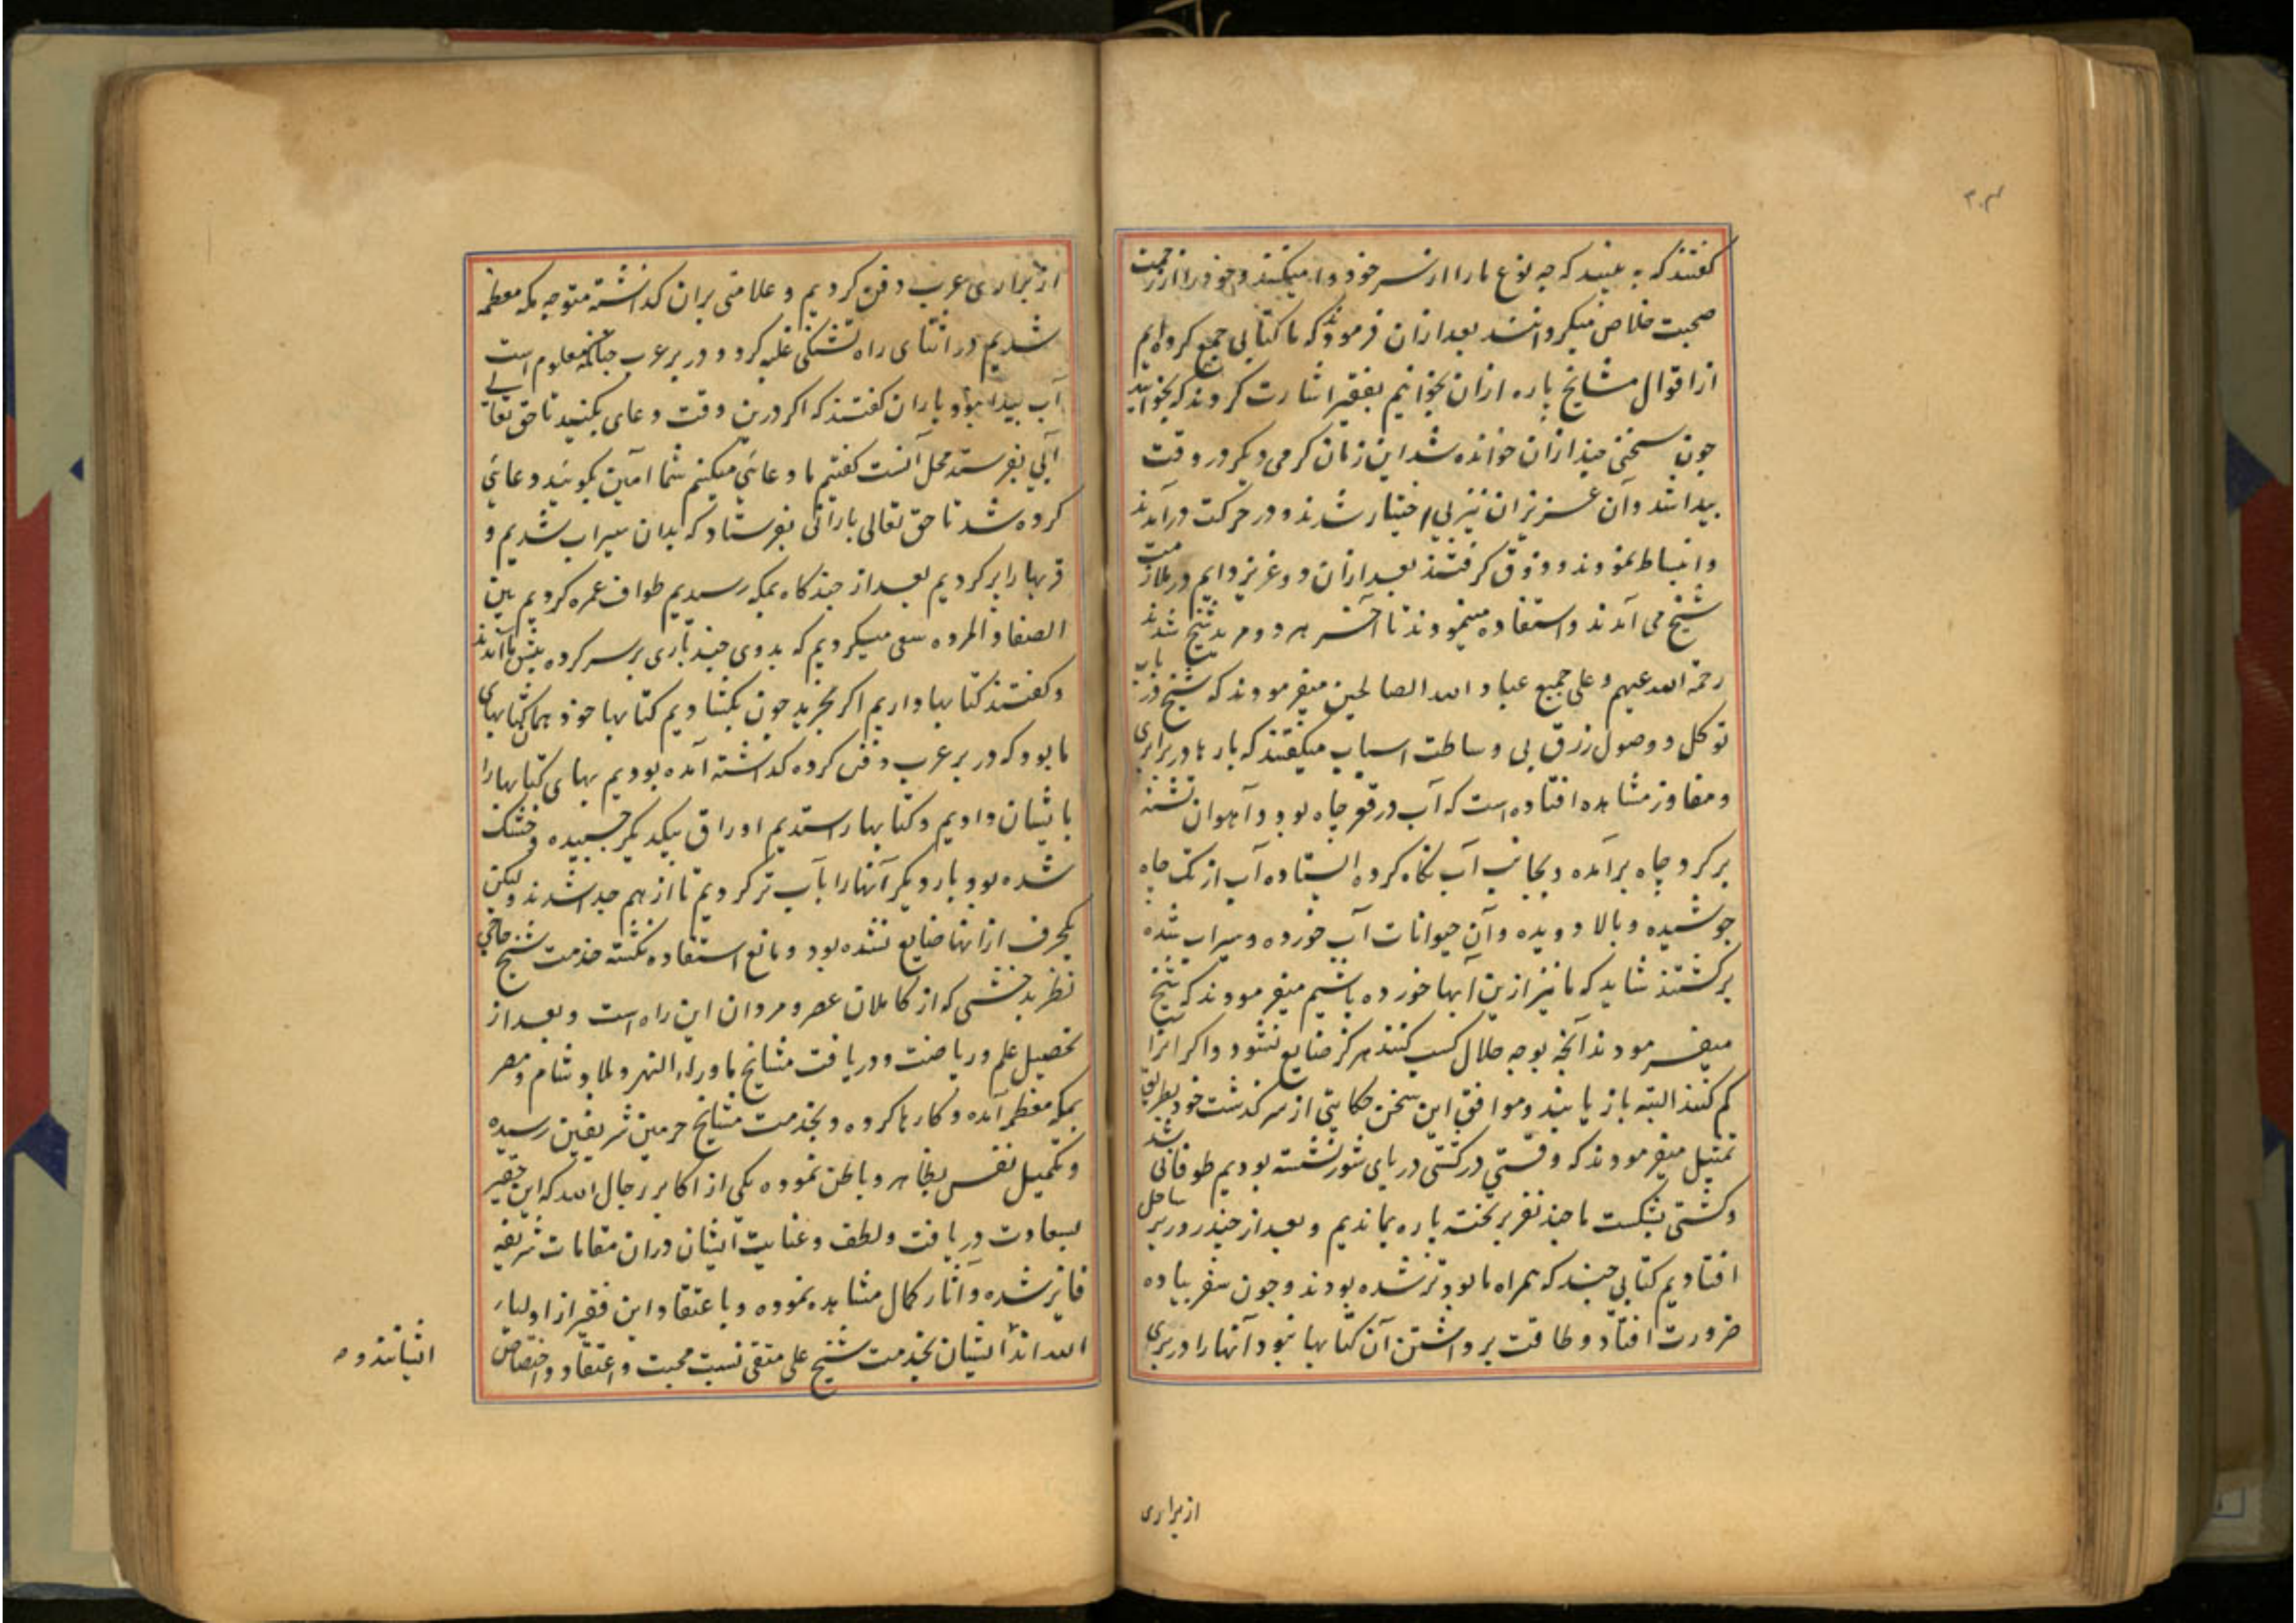 گفتند که به بینید که چه نوع ما را از سر خود وا میکنند و خود را از زحمت
صحبت خلاص میکردانند بعد ازان فرمودند که ما کتابی جمع کرده ایم
از اقوال مشایخ پاره ازان بخوانیم بفقیر اشارت کردند که بخوانید
چون سخنی چند ازان خوانده شد این زمان کرمی دیکر در وقت
پیدا شد و آن عزیزان نیز بی اختیار شدند و در حرکت درآمدند
و انبساط نمودند و ذوق کرفتند بعد ازان دو عزیز دایم در ملازمت
شیخ می آمدند و استفاده مینمودند تا آخر هر دو مرید شیخ شدند
رحمة الله علیهم و علی جمیع عباد الله الصالحین میفرمودند که شیخ در باب
توکل و وصول رزق بی وساطت اسباب میکفتند که بارها در براری
و مفاوز مشاهده افتاده است که آب در قعر چاه بود و آهوان تشنه
بر کرد چاه برآمده و بجانب آب نکاه کرده ایستاده آب از تک چاه
جوشیده و بالا دویده و آن حیوانات آب خورده و سیراب شده
برکشتند شاید که ما نیز ازین آبها خورده باشیم میفرمودند که شیخ
میفرمودند آنچه بوجه حلال کسب کنند هرکز ضایع نشود و اکر آنرا
کم کنند البته باز یابند و موافق این سخن حکایتی از سرکذشت خود بطریق
تمثیل میفرمودند که وقتی در کشتی دریای شور نشسته بودیم طوفانی شد
و کشتی بشکست ما چند نفر بر تخته پاره بماندیم و بعد از چند روز بر ساحل
افتادیم کتابی چند که همراه ما بود تر شده بودند و چون سفر پیاده
ضرورت افتاد و طاقت برداشتن آن کتابها نبود آنها را در بری
از براری
از براری عرب دفن کردیم و علامتی بران کذاشته متوجه مکه معظمه
شدیم در اثنای راه تشنکی غلبه کرد و در بر عرب چنانکه معلوم است
آب پیدا نبود یاران کفتند که اکر درین وقت دعای بکنید تا حق تعالی
آبی بفرستد محل آنست کفتیم ما دعائی میکنیم شما آمین بکوئید دعائی
کرده شد تا حق تعالی بارانی بفرستاد که بدان سیراب شدیم و
قربها را پر کردیم بعد از چندکاه بمکه رسیدیم طواف عمره کردیم بین
الصفا و المروه سعی میکردیم که بدوی چند باری بر سر کرده پیش ما آمدند
و کفتند کتابها داریم اکر بخرید چون بکشادیم کتابها خود همان کتابهای
ما بود که در بر عرب دفن کرده کذاشته آمده بودیم بهای کتابها را
بایشان دادیم و کتابها را ستدیم اوراق بیکدیکر چسپیده و خشک
شده بود بار دیکر آنها را بآب تر کردیم تا از هم جدا شدند و لیکن
یکحرف ازانها ضایع نشده بود و مانع استفاده نکشته خدمت شیخ حاجی
نظر بدخشی که از کاملان عصر و مردان این راه است و بعد از
تحصیل علم و ریاضت و دریافت مشایخ ماوراء النهر و بلاد شام و مصر
بمکه معظمه آمده و کارها کرده و بخدمت مشایخ حرمین شریفین رسیده
و تکمیل نفس بظاهر و باطن نموده یکی از اکابر رجال الله که این حقیر
بسعادت دریافت و لطف و عنایت ایشان دران مقامات شریفه
فایز شده و آثار کمال مشاهده نموده و باعتقاد این فقیر از اولیاء
الله اند ایشان بخدمت شیخ علی متقی نسبت محبت و اعتقاد و اختصاص